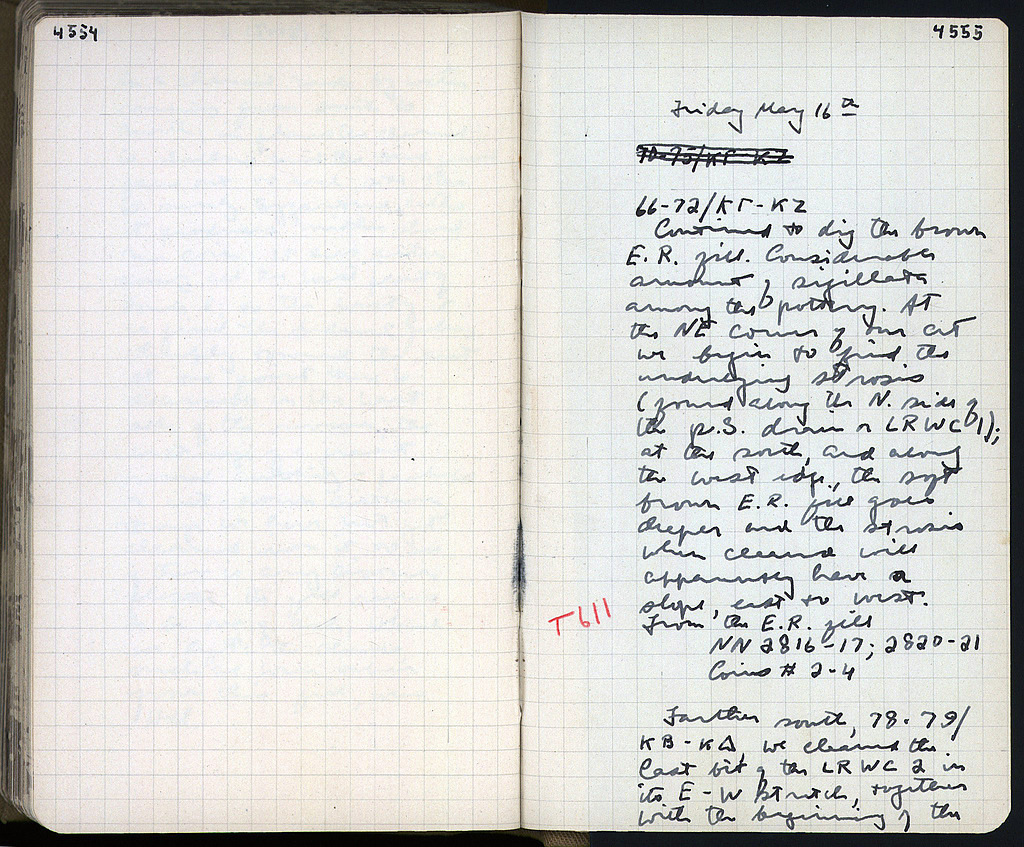 4554
4555
Friday May 16th
70-75/ΚΓ-ΚΖ
66-72/ΚΓ-ΚΖ
Continued to dig the brown
E.R. fill. Considerable
amount of sigillata
among the pottery. At
the NE corner of our cut
we begin to find the
underlying strosis
(found along the N. side of
the p.s. drain or LRWC 1);
at the south, and along
the west edge, the soft
brown E.R. fill goes
deeper and the strosis
when cleaned will
apparently have a
slope, east to west.
T611
From the E.R. fill
NN 2816-17; 2820-21
Coins # 2-4
Farther south, 78-79/
ΚΒ-ΚΔ, we cleaned the
last bit of the LRWC 2 in
its E-W stretch, together
with the beginning of the